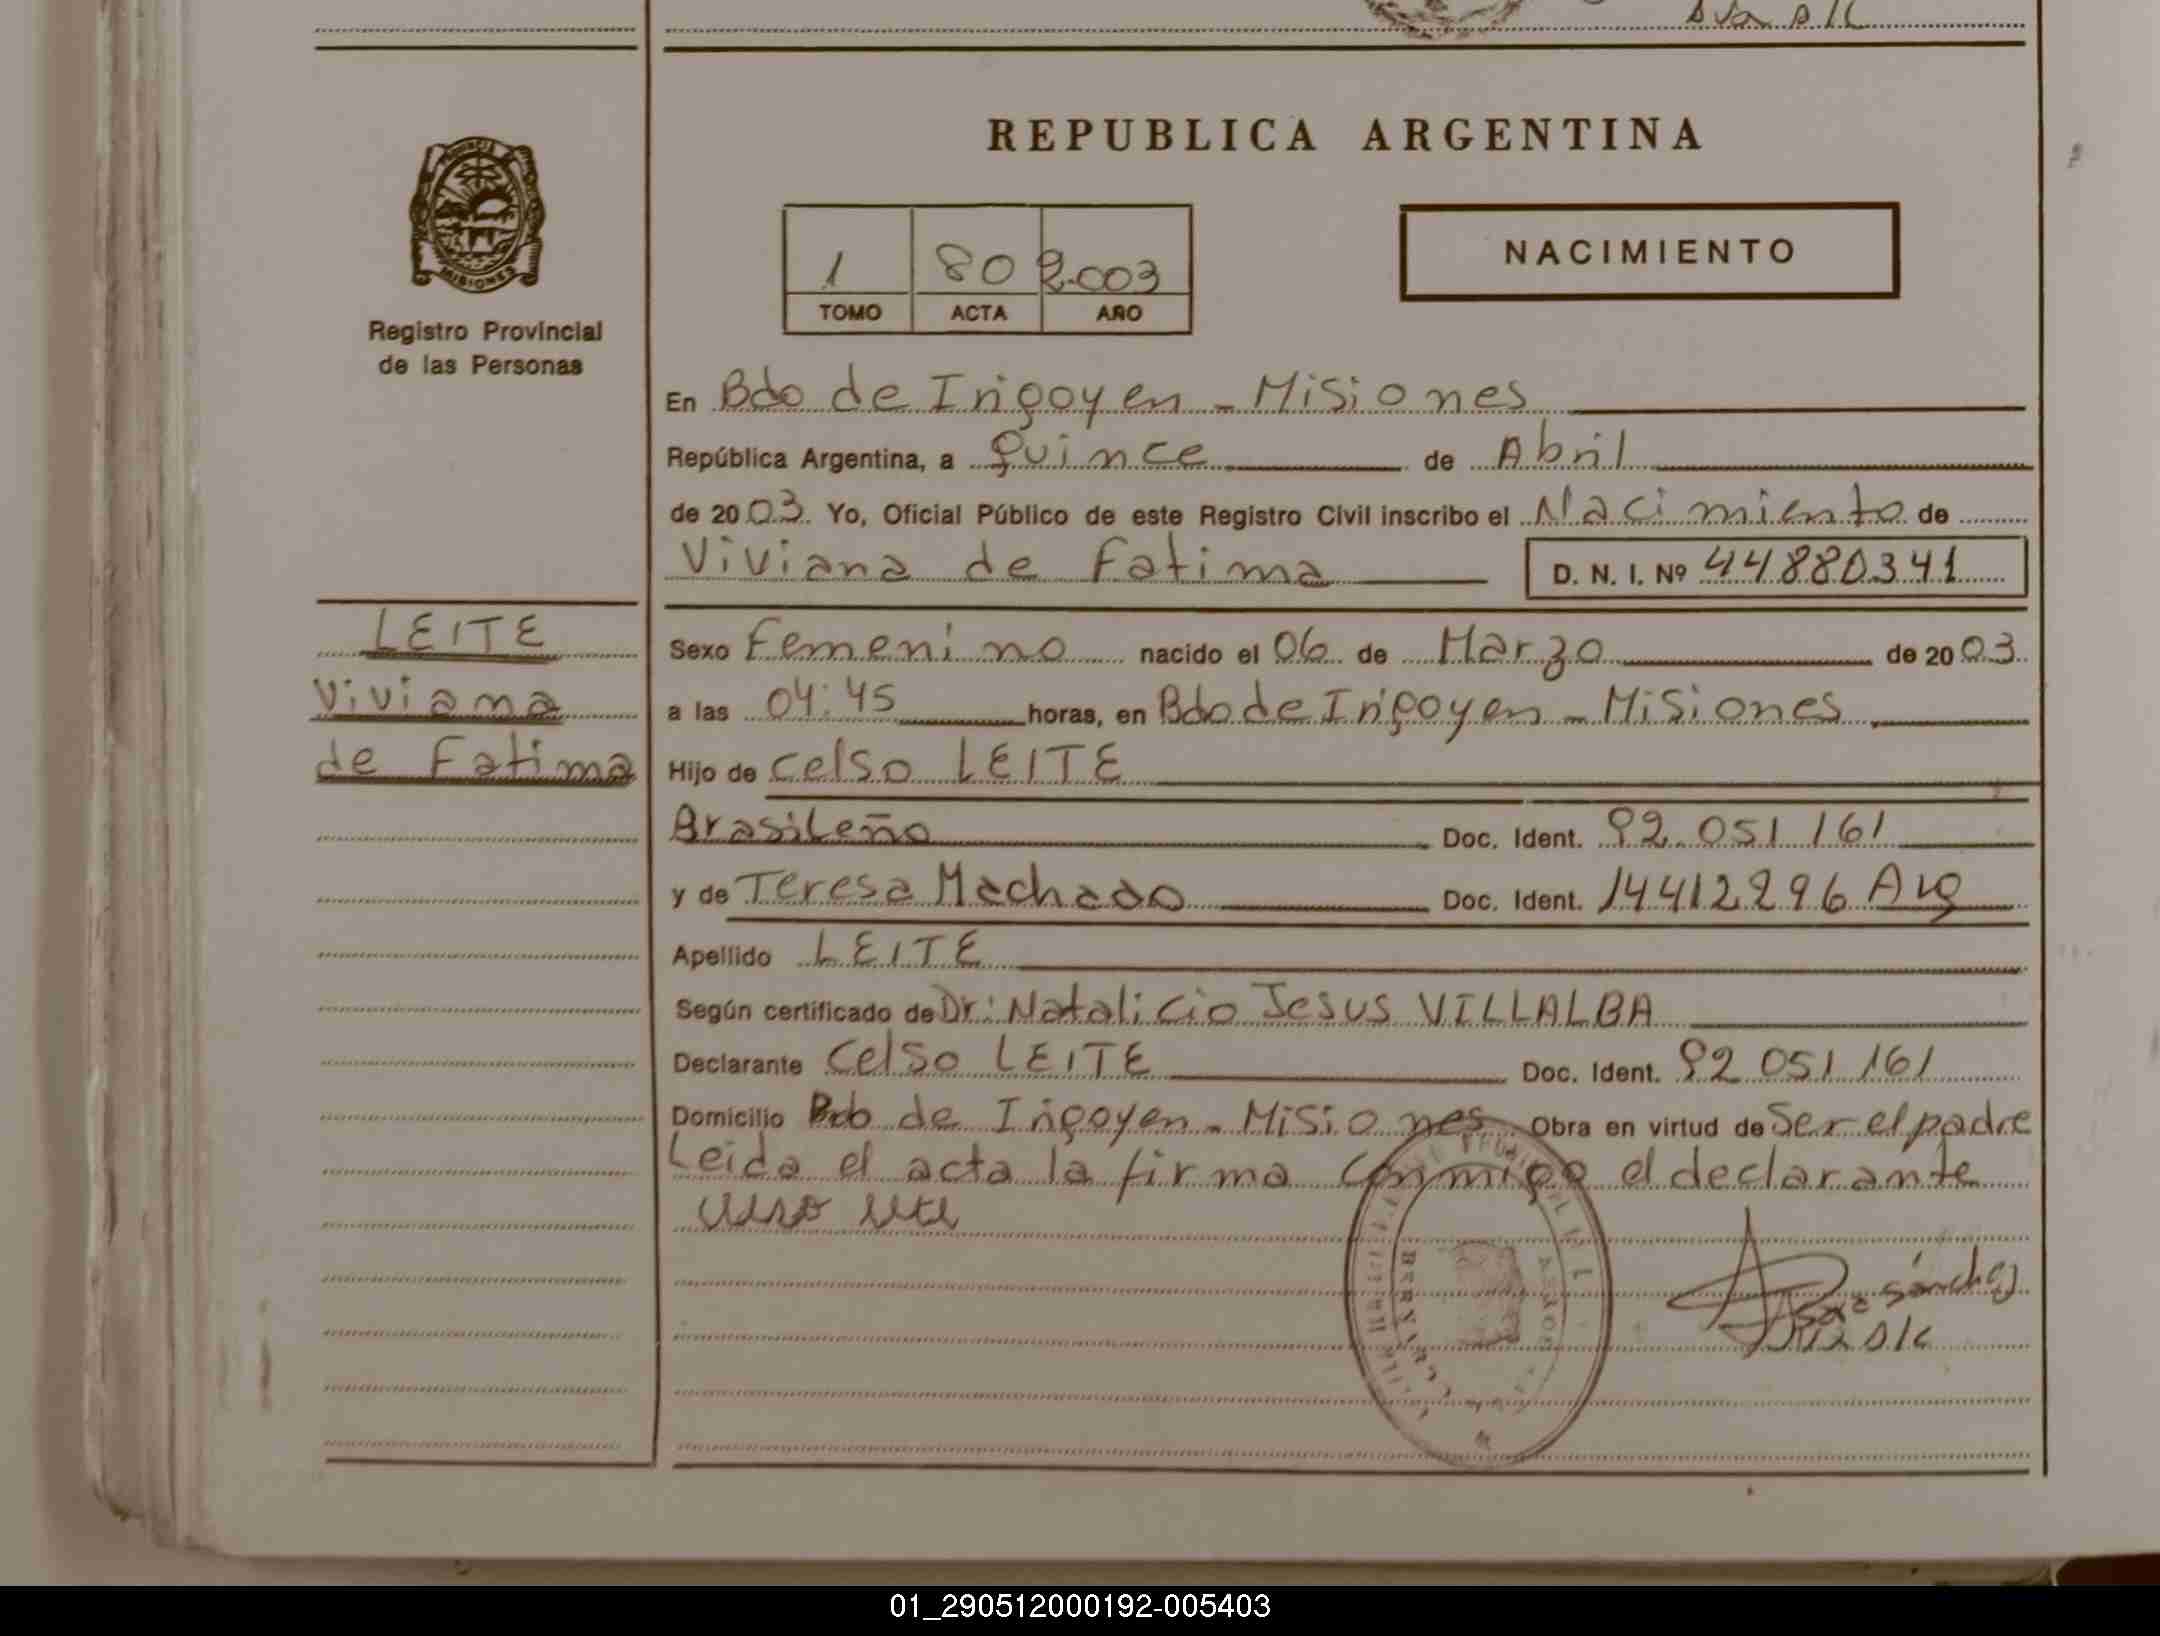 REPUBLICA ARGENTINA
PROVINCIA DE
MISIONES
Registro Provincial
de las Personas
1 80 2.003
TOMO ACTA AÑO
NACIMIENTO
En Bdo de Irigoyen - Misiones
República Argentina, a quince de Abril
de 2003. Yo, Oficial Público de este Registro Civil inscribo el Nacimiento de
Viviana de Fatima D. N. I. Nº 44880341
LEITE
Viviana
de Fatima
Sexo Femenino nacido el 06 de Marzo de 2003
a las 04:45 horas, en Bdo de Irigoyen - Misiones
Hijo de Celso LEITE
Brasileño Doc. Ident. 92.051 161
y de Teresa Machado Doc. Ident. 14412296 Arg
Apellido LEITE
Según certificado de Dr: Natalicio Jesus VILLALBA
Declarante Celso LEITE Doc. Ident. 92 051 161
Domicilio Bdo de Irigoyen - Misiones Obra en virtud de Ser el padre
Leida el acta la firma conmigo el declarante
Sánchez
01_290512000192-005403